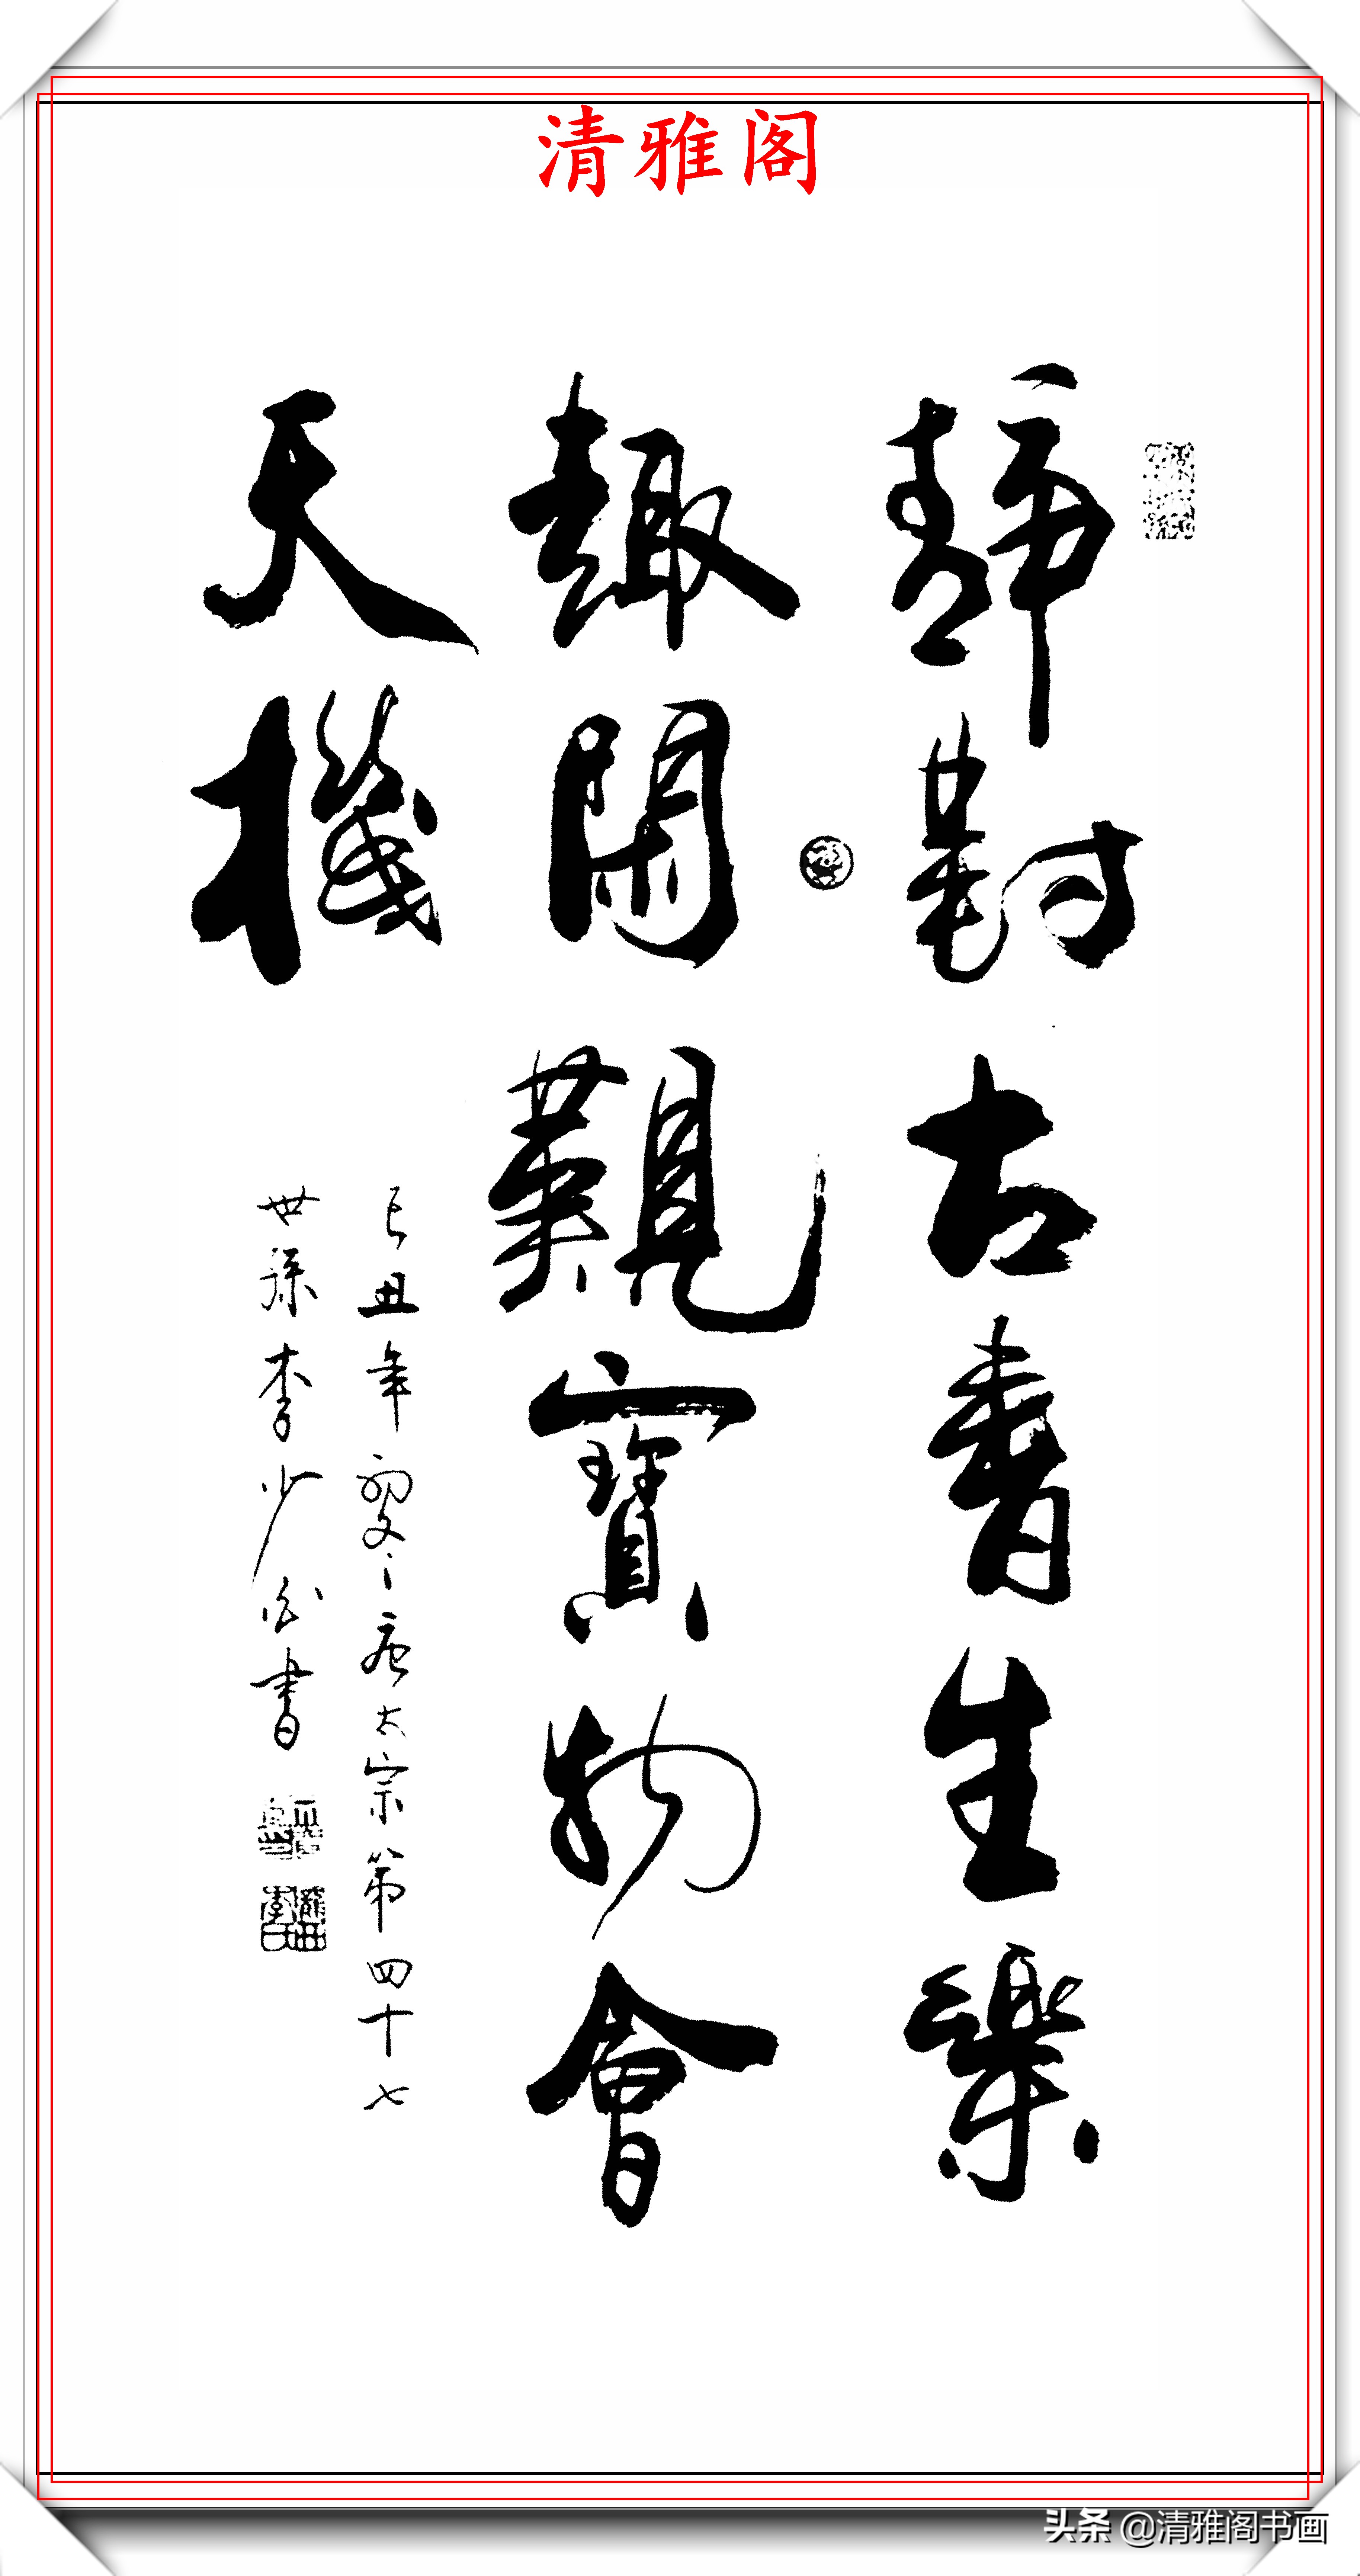 清雅阁
靜對古書生樂
趣閒觀寶物會
天機
己丑年初冬唐太宗第四十七
世孫李少白書
隴西李氏
头条 @清雅阁书画